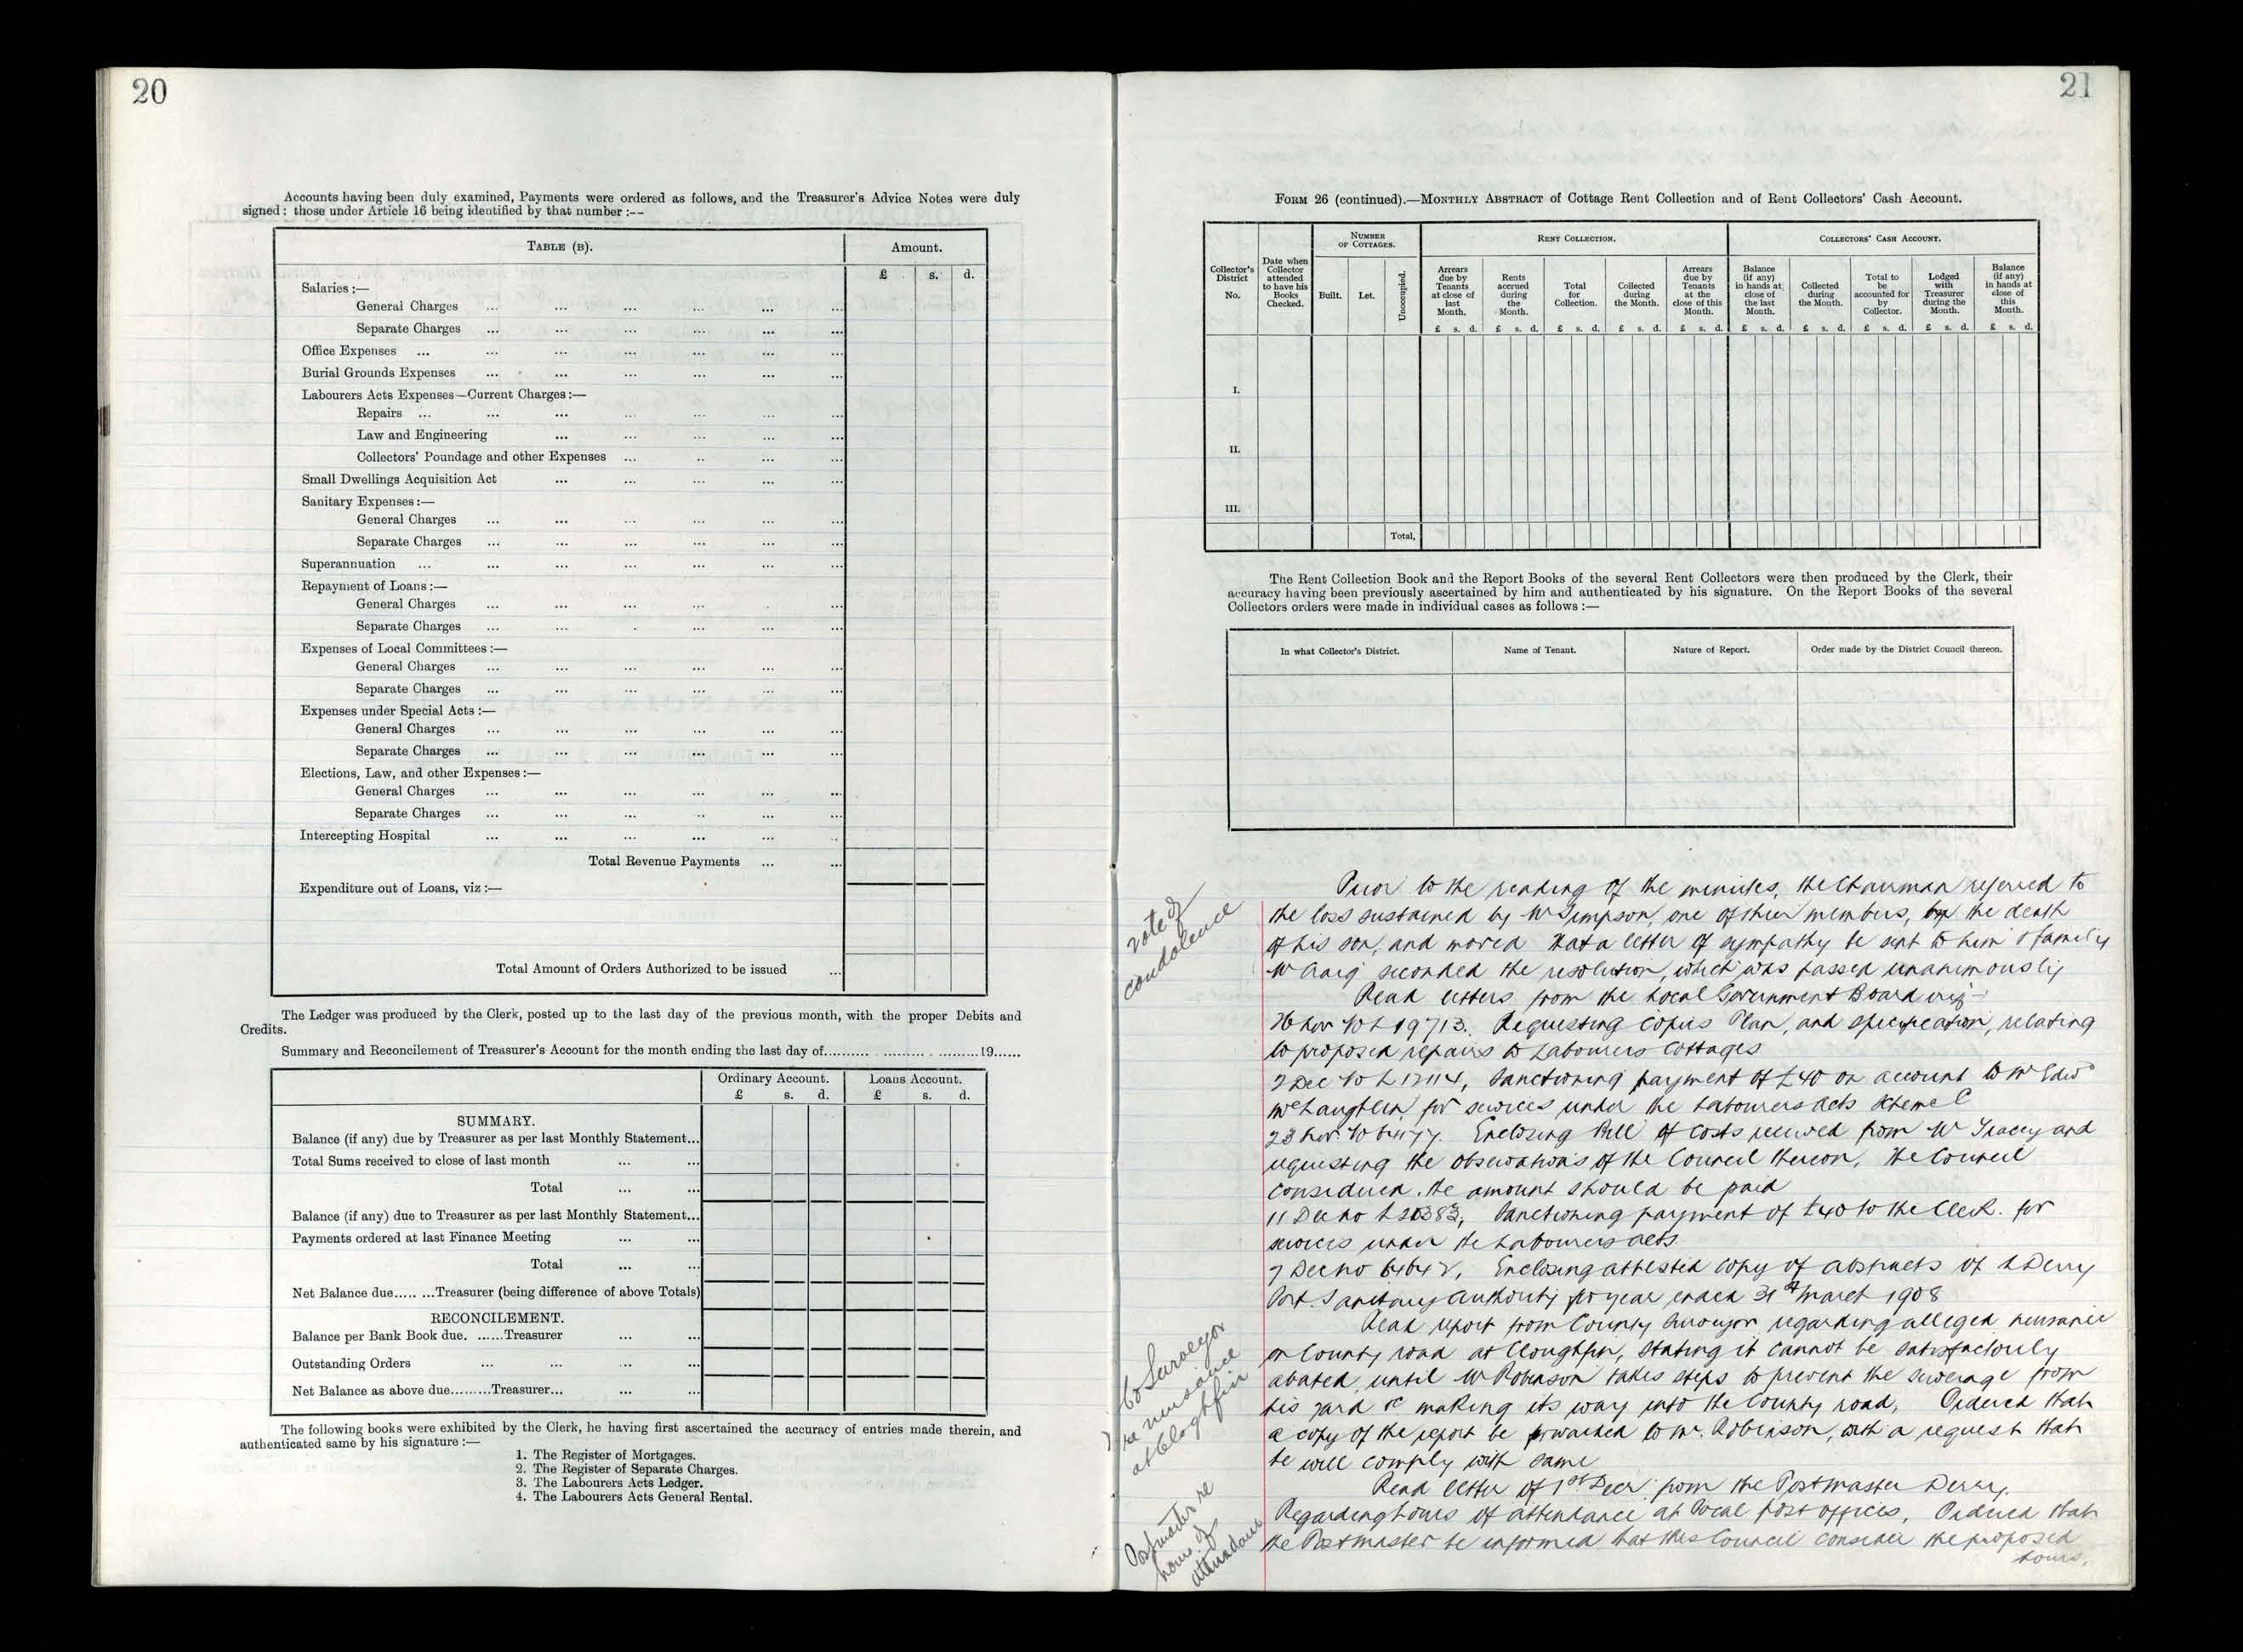 20
Accounts having been duly examined, Payments were ordered as follows, and the Treasurer's Advice Notes were duly
signed: those under Article 16 being identified by that number :--
TABLE (B). Amount.
£ s. d.
Salaries :—
General Charges ... ... ... ... ... ...
Separate Charges ... ... ... ... ... ...
Office Expenses ... ... ... ... ... ... ...
Burial Grounds Expenses ... ... ... ... ... ...
Labourers Acts Expenses—Current Charges :—
Repairs ... ... ... ... ... ... ...
Law and Engineering ... ... ... ...
Collectors' Poundage and other Expenses ... ... ... ...
Small Dwellings Acquisition Act ... ... ... ... ...
Sanitary Expenses :—
General Charges ... ... ... ... ... ...
Separate Charges ... ... ... ... ... ...
Superannuation ... ... ... ... ... ... ...
Repayment of Loans :—
General Charges ... ... ... ... ...
Separate Charges ... ... ... ... ...
Expenses of Local Committees :—
General Charges ... ... ... ... ... ...
Separate Charges ... ... ... ... ... ...
Expenses under Special Acts :—
General Charges ... ... ... ... ... ...
Separate Charges ... ... ... ... ... ...
Elections, Law, and other Expenses :—
General Charges ... ... ... ... ... ...
Separate Charges ... ... ... ... ... ...
Intercepting Hospital ... ... ... ... ... ...
Total Revenue Payments ... ...
Expenditure out of Loans, viz :—
Total Amount of Orders Authorized to be issued ...
The Ledger was produced by the Clerk, posted up to the last day of the previous month, with the proper Debits and
Credits.
Summary and Reconcilement of Treasurer's Account for the month ending the last day of.......... .......... ..........19......
Ordinary Account. Loans Account.
£ s. d. £ s. d.
SUMMARY.
Balance (if any) due by Treasurer as per last Monthly Statement...
Total Sums received to close of last month ... ...
Total ... ...
Balance (if any) due to Treasurer as per last Monthly Statement...
Payments ordered at last Finance Meeting ... ...
Total ... ...
Net Balance due..... ...Treasurer (being difference of above Totals)
RECONCILEMENT.
Balance per Bank Book due. ......Treasurer ... ...
Outstanding Orders ... ... ... ...
Net Balance as above due.........Treasurer... ... ...
The following books were exhibited by the Clerk, he having first ascertained the accuracy of entries made therein, and
authenticated same by his signature :—
1. The Register of Mortgages.
2. The Register of Separate Charges.
3. The Labourers Acts Ledger.
4. The Labourers Acts General Rental.
21
FORM 26 (continued).—MONTHLY ABSTRACT of Cottage Rent Collection and of Rent Collectors' Cash Account.
Collector's District No.
Date when Collector attended to have his Books Checked.
NUMBER OF COTTAGES.
Built. Let. Unoccupied.
RENT COLLECTION.
Arrears due by Tenants at close of last Month. £ s. d.
Rents accrued during the Month. £ s. d.
Total for Collection. £ s. d.
Collected during the Month. £ s. d.
Arrears due by Tenants at the close of this Month. £ s. d.
COLLECTORS' CASH ACCOUNT.
Balance (if any) in hands at close of the last Month. £ s. d.
Collected during the Month. £ s. d.
Total to be accounted for by Collector. £ s. d.
Lodged with Treasurer during the Month. £ s. d.
Balance (if any) in hands at close of this Month. £ s. d.
I.
II.
III.
Total,
The Rent Collection Book and the Report Books of the several Rent Collectors were then produced by the Clerk, their
accuracy having been previously ascertained by him and authenticated by his signature. On the Report Books of the several
Collectors orders were made in individual cases as follows :—
In what Collector's District. Name of Tenant. Nature of Report. Order made by the District Council thereon.
vote of
condolence
Prior to the reading of the minutes, the Chairman referred to
the loss sustained by Mr Simpson, one of their members, by the death
of his son, and moved that a letter of sympathy be sent to him & family
Mr Craig seconded the resolution, which was passed unanimously
Read letters from the Local Government Board viz:-
26 Nov No L 19713. Requesting copies Plan, and specification, relating
to proposed repairs to Labourers Cottages
2 Dec No L 17114, Sanctioning payment of £40 on account to Mr Edwd
McLaughlin for services under the Labourers Acts Scheme
23 Nov. No Enclosing Bill of Costs received from Mr Tracey and
requesting the observations of the Council thereon. The Council
considered the amount should be paid
11 Dec No Sanctioning payment of £40 to the Clerk. for
services under the Labourers Acts.
7 Dec No Enclosing attested copy of abstracts of L Derry
Port Sanitary Authority for year ended 31st March 1908
Co Surveyor
re nuisance
at Cloghfin
Read report from County Surveyor, regarding alleged nuisance
on County road at Cloughfin, stating it cannot be satisfactorily
abated, until Mr Robinson takes steps to prevent the sewerage from
his yard &c making its way into the County road, Ordered that
a copy of the report be forwarded to Mr. Robinson, with a request that
he will comply with same
Postmaster re
hours of
attendance
Read letter of 1st Decr from the Postmaster Derry,
Regarding hours of attendance at local post offices, Ordered that
the Postmaster be informed that this Council consider the proposed
hours,